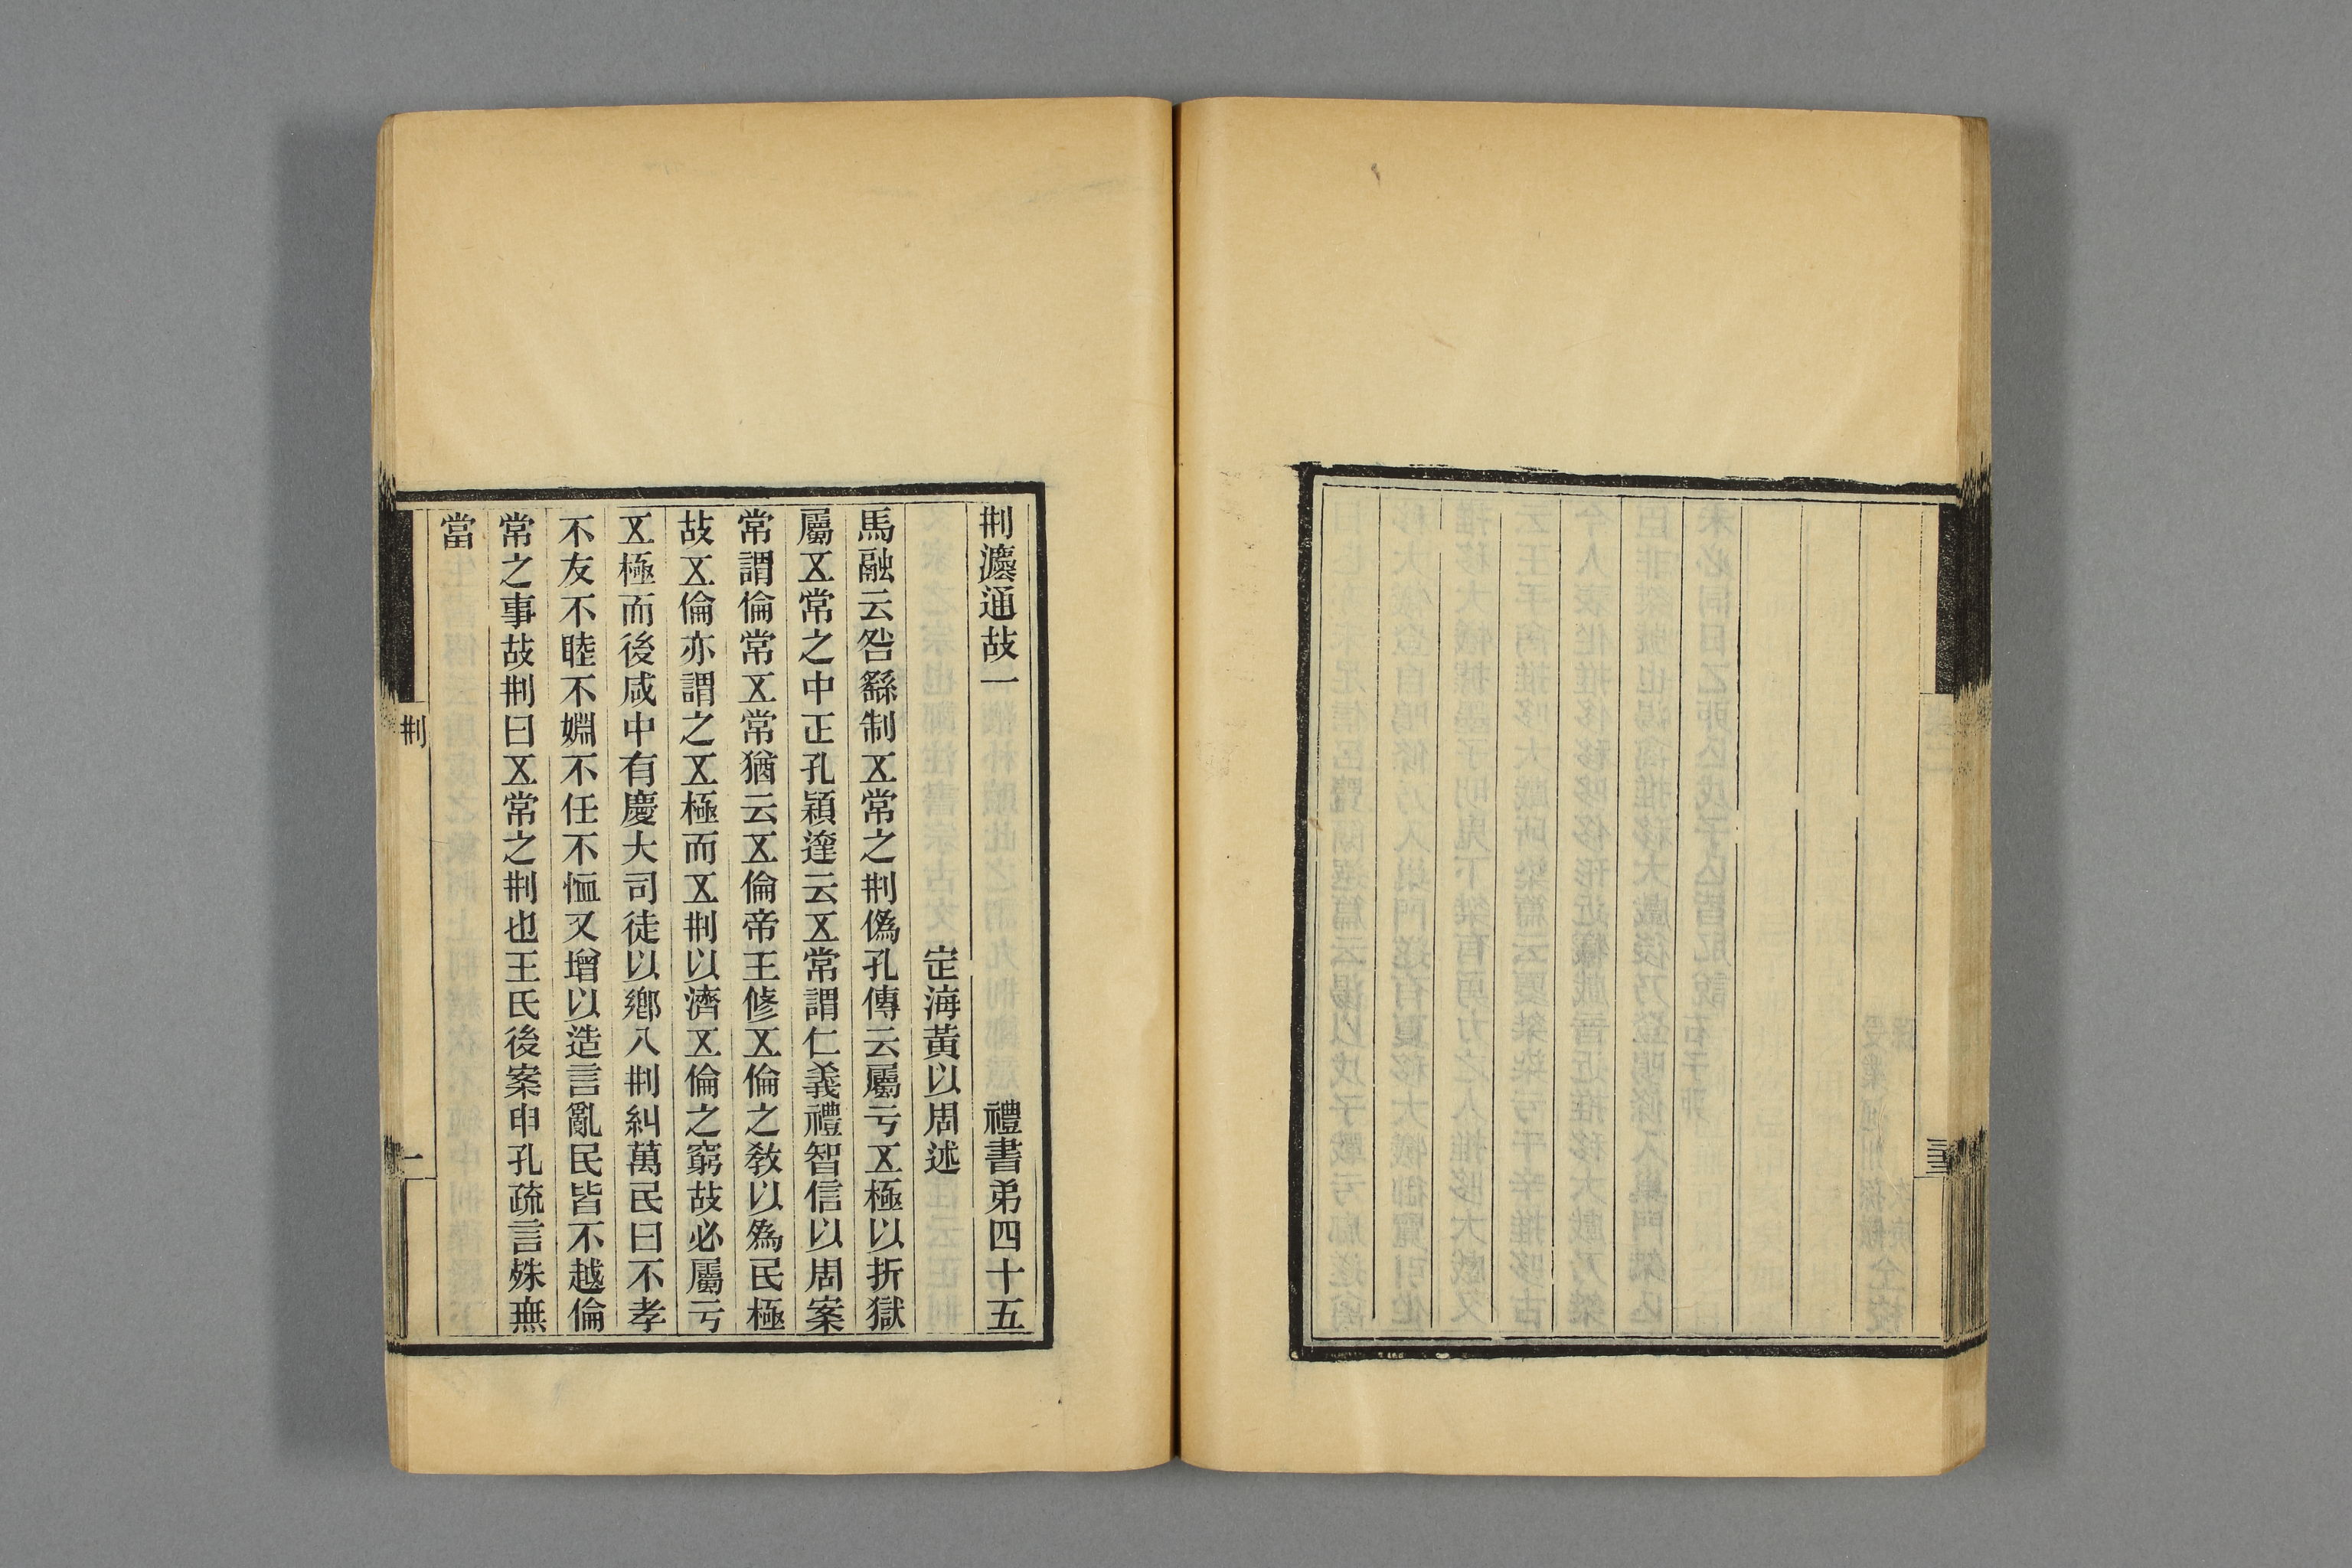 三十三
㓝灋通故一 禮書弟四十五
定海黃以周述
馬融云咎繇制㐅常之㓝僞孔傳云屬亏㐅極以折獄
屬㐅常之中正孔穎達云㐅常謂仁義禮智信以周案
常謂倫常㐅常猶云㐅倫帝王修㐅倫之敎以爲民極
故㐅倫亦謂之㐅極而㐅㓝以濟㐅倫之窮故必屬亏
㐅極而後咸中有慶大司徒以鄉八㓝糾萬民曰不孝
不友不睦不婣不任不恤又增以造言亂民皆不越倫
常之事故㓝曰㐅常之㓝也王氏後案申孔疏言殊無
當
㓝
一